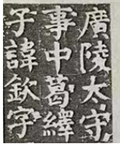 廣陵太守
事中葛繹
子諱欽字